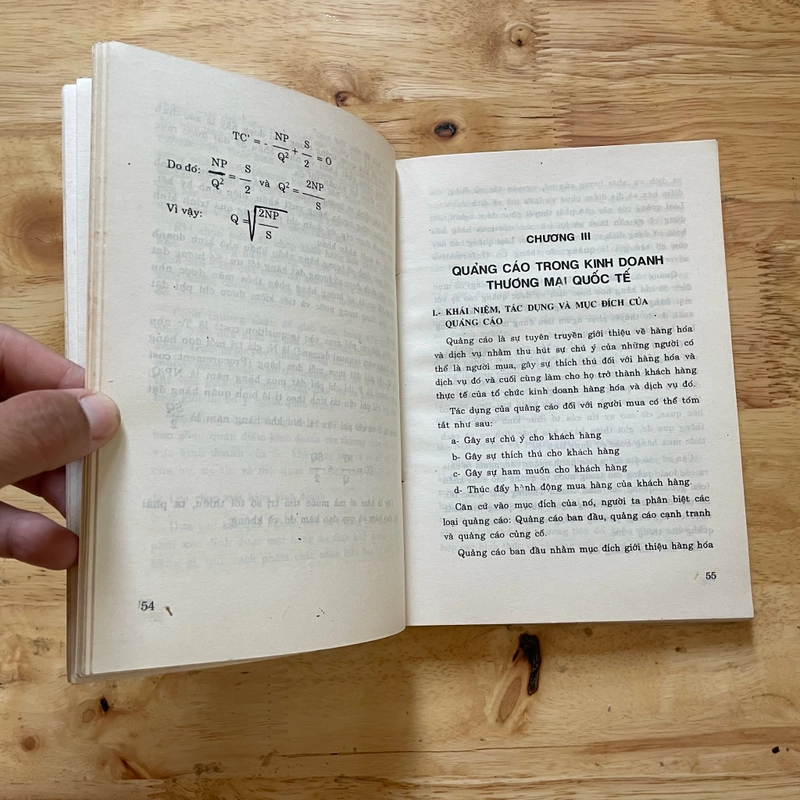 TC' = - NP/Q² + S/2 = O
Do đó: NP/Q² = S/2 và Q² = 2NP/S
Vì vậy: Q = √(2NP/S)
54
CHƯƠNG III
QUẢNG CÁO TRONG KINH DOANH
THƯƠNG MẠI QUỐC TẾ
I.- KHÁI NIỆM, TÁC DỤNG VÀ MỤC ĐÍCH CỦA
QUẢNG CÁO
Quảng cáo là sự tuyên truyền giới thiệu về hàng hóa
và dịch vụ nhằm thu hút sự chú ý của những người có
thể là người mua, gây sự thích thú đối với hàng hóa và
dịch vụ đó và cuối cùng làm cho họ trở thành khách hàng
thực tế của tổ chức kinh doanh hàng hóa và dịch vụ đó.
Tác dụng của quảng cáo đối với người mua có thể tóm
tắt như sau:
a- Gây sự chú ý cho khách hàng
b- Gây sự thích thú cho khách hàng
c- Gây sự ham muốn cho khách hàng
d- Thúc đẩy hành động mua hàng của khách hàng.
Căn cứ vào mục đích của nó, người ta phân biệt các
loại quảng cáo: Quảng cáo ban đầu, quảng cáo cạnh tranh
và quảng cáo củng cố.
Quảng cáo ban đầu nhằm mục đích giới thiệu hàng hóa
55